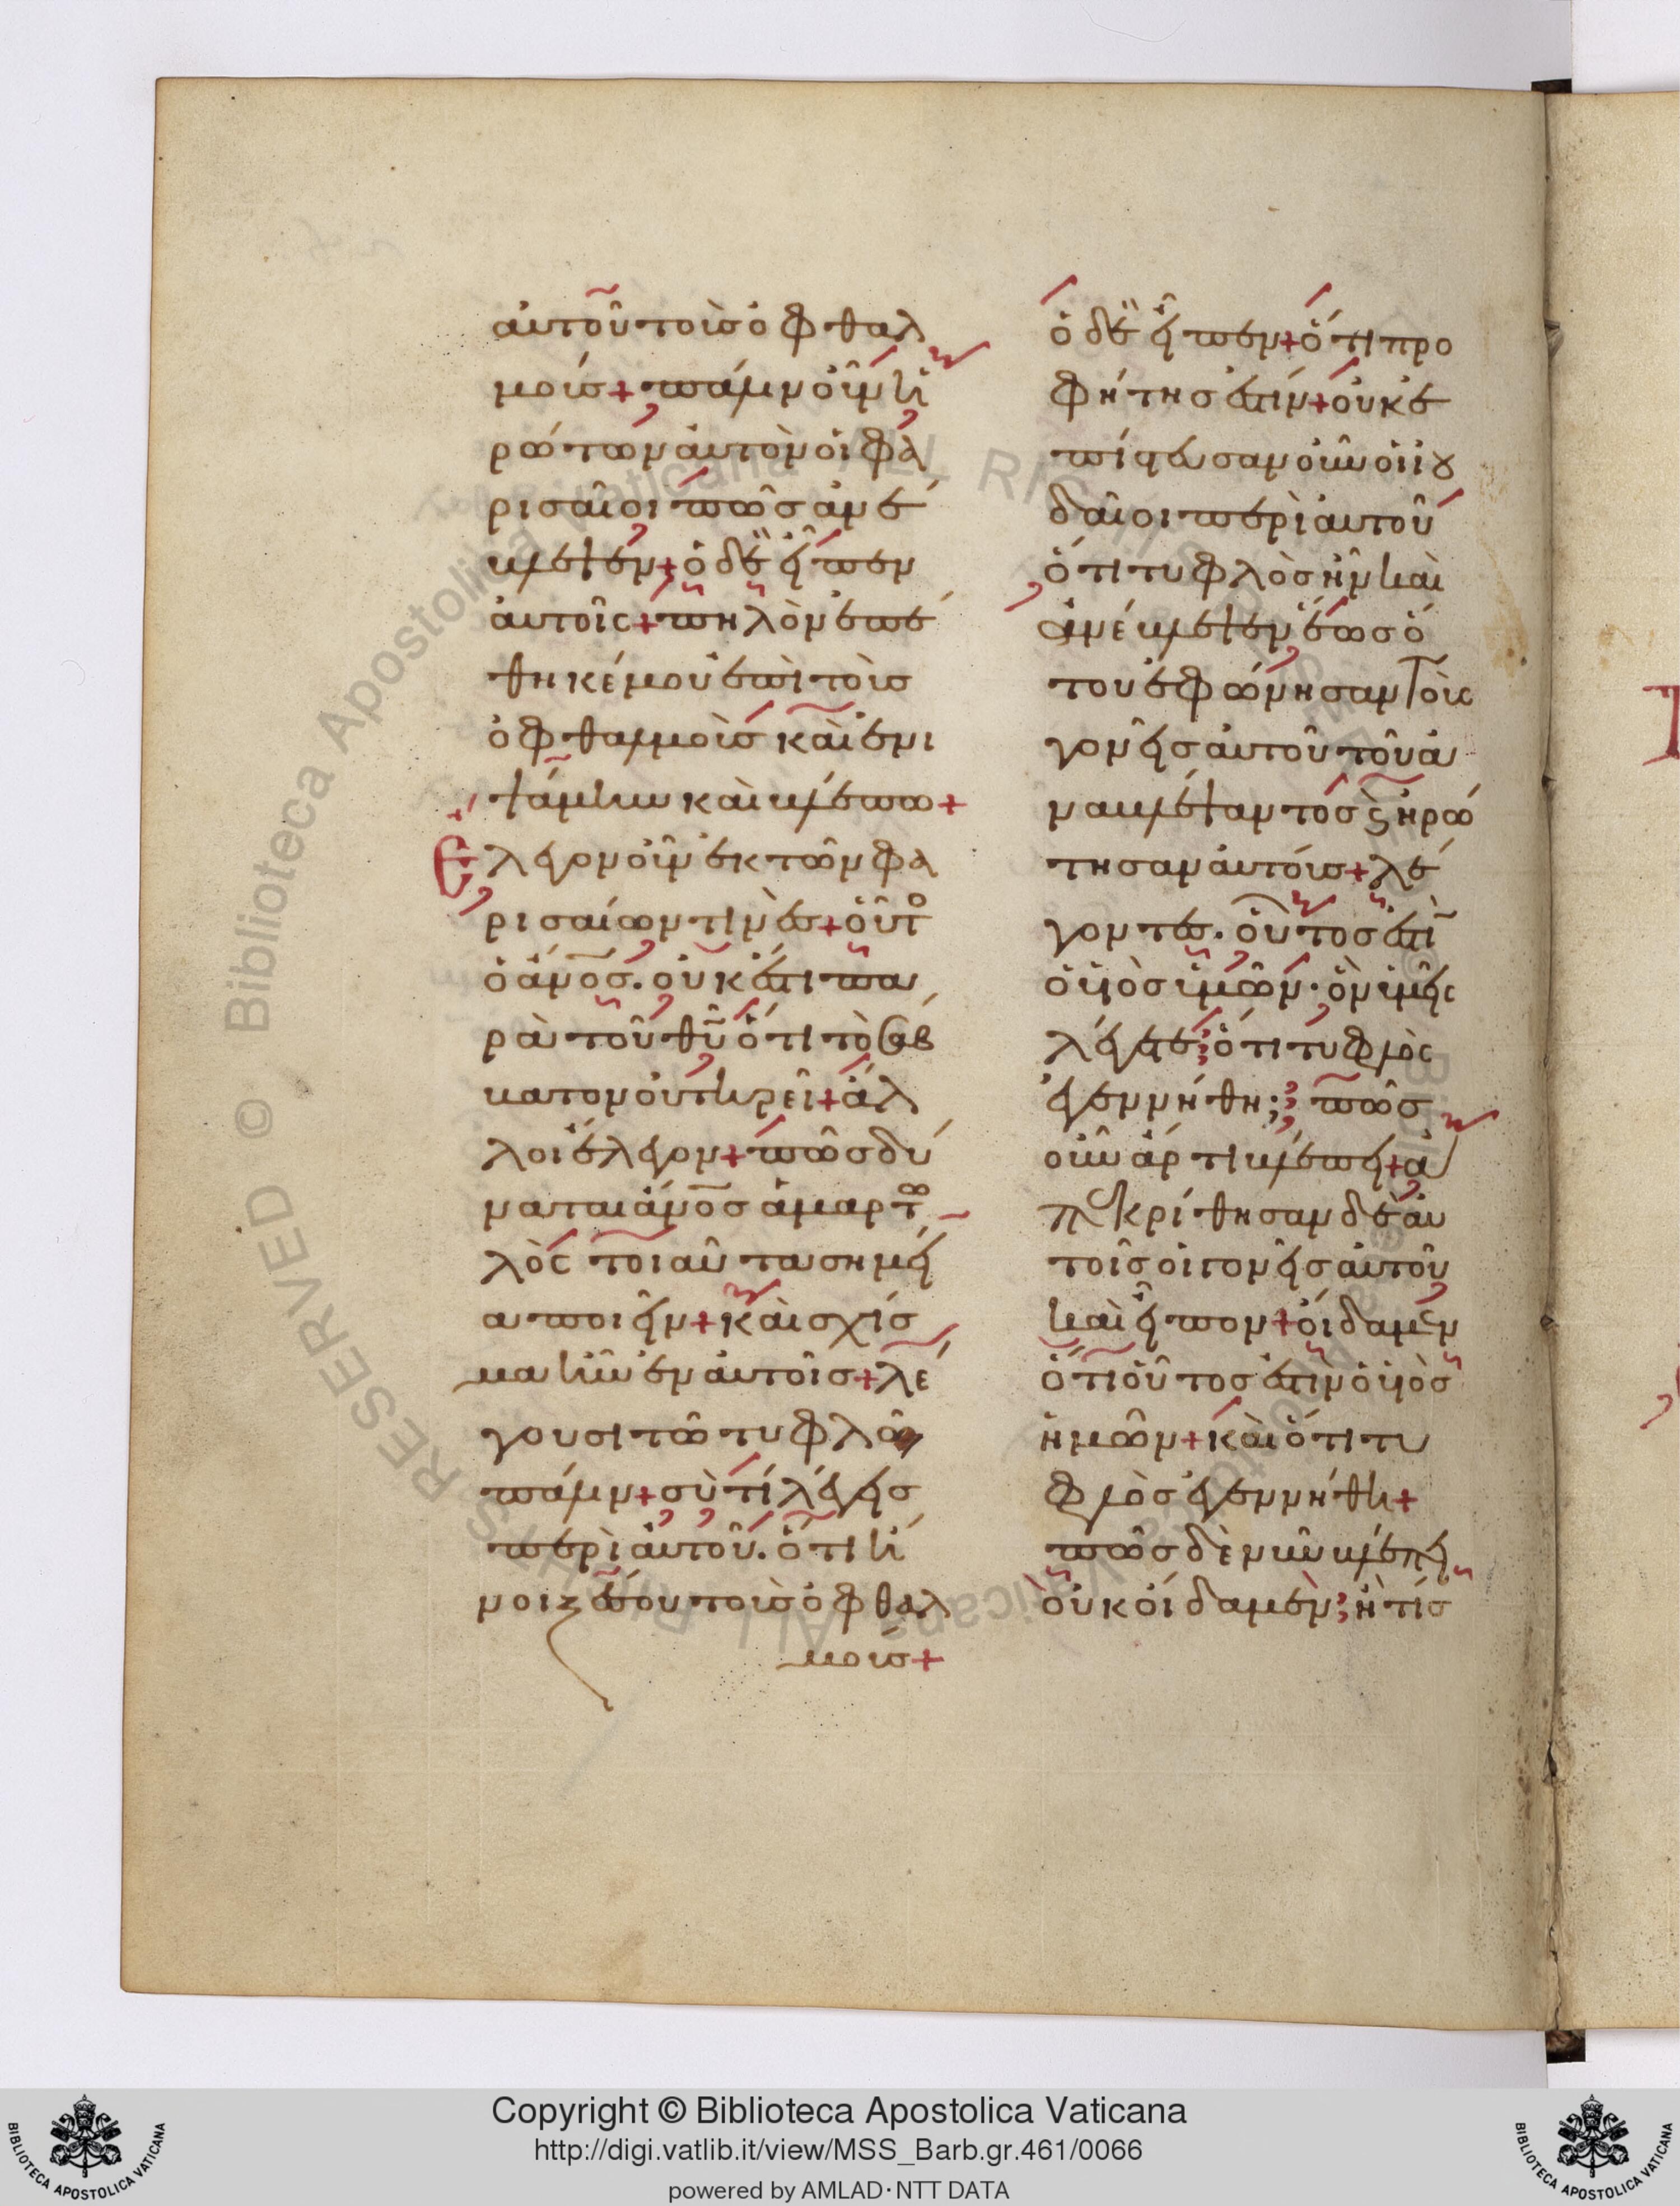 αὐτοῦ τοὺς ὀφθαλ
μούς+ πάλιν οὖν ἠ
ρώτων αὐτὸν οἱ φα
ρισαῖοι πῶς ἀνέ
βλεψεν+ ὁ δὲ εἶπεν
αὐτοῖς+ πηλὸν ἐπέ
θηκέ μου ἐπὶ τοὺς
ὀφθαλμοὺς καὶ ἐνι
ψάμην καὶ βλέπω+
Ἔλεγον οὖν ἐκ τῶν φα
ρισαίων τινὲς+ οὗτο
ὁ ἄνος. οὐκ ἔστι πα
ρὰ τοῦ θυ ὅτι τὸ σάβ
βατον οὐ τηρεῖ+ ἄλ
λοι ἔλεγον+ πῶς δύ
ναται ἄνος ἁμαρτω
λὸς τοιαῦτα σημεῖ
α ποιεῖν+ καὶ σχίσ
μα ἦν ἐν αὐτοῖς+ λέ
γουσι τῶ τυφλῶ
πάλιν+ σὺ τί λέγεις
περὶ αὐτοῦ. ὅτι ἤ
νοιξέ σου τοὺς ὀφθαλ
μούς+
ὁ δὲ εἶπεν+ ὅτι προ
φήτης ἐστίν+ οὐκ ἐ
πίστευσαν οὖν οἱ ἰου
δαῖοι περὶ αὐτοῦ
ὅτι τυφλὸς ἦν καὶ
ἀνέβλεψεν ἕως ὅ
του ἐφώνησαν τοὺς
γονεῖς αὐτοῦ τοῦ ἀ
ναβλέψαντος ϗ ἠρώ
τησαν αὐτούς+ λέ
γοντες. οὗτος ἐστὶ
ὁ υἱὸς ὑμῶν. ὃν ὑμεῖς
λέγετε; ὅτι τυφλὸς
ἐγεννήθη; πῶς
οὖν ἄρτι βλέπει+ ἀ
πεκρίθησαν δὲ αὐ
τοῖς οἱ γονεῖς αὐτοῦ
καὶ εἶπον+ οἴδαμεν
ὅτι οὗτος ἐστὶν ὁ υἱὸς
ἡμῶν+ καὶ ὅτι τυ
φλὸς ἐγεννήθη+
πῶς δὲ νῦν βλέπει
οὐκ οἴδαμεν; ἢ τίς
Copyright © Biblioteca Apostolica Vaticana
http://digi.vatlib.it/view/MSS_Barb.gr.461/0066
powered by AMLAD·NTT DATA